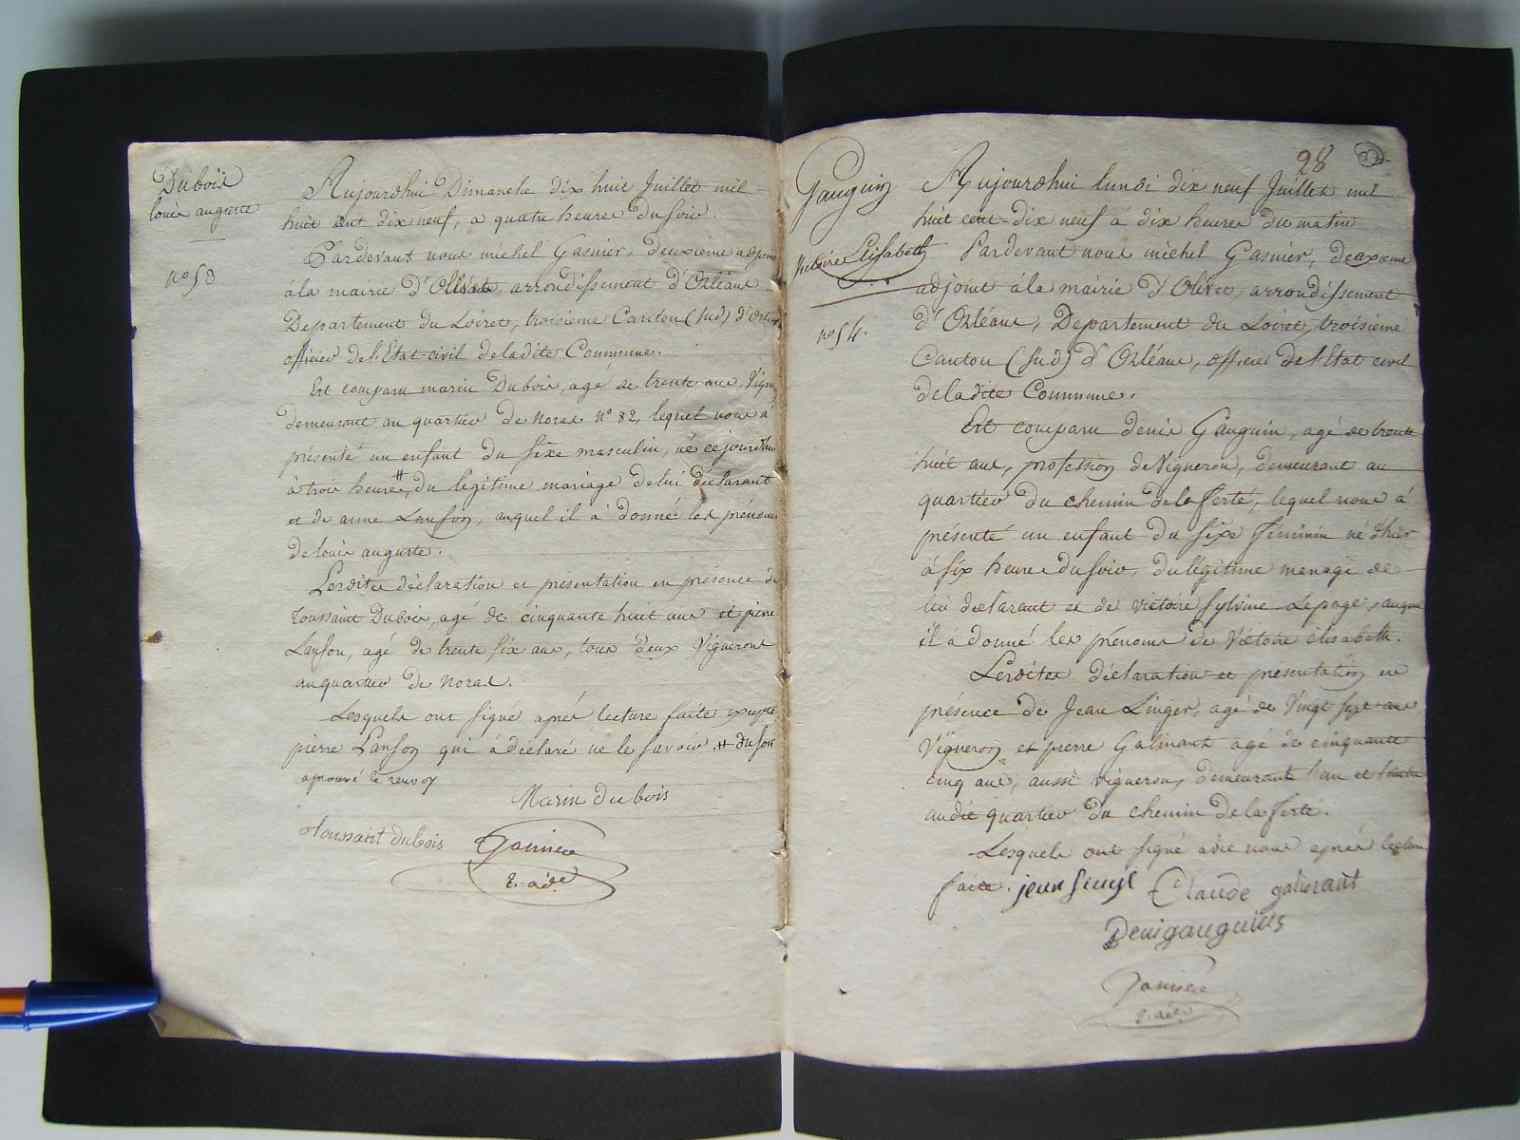 Dubois
louis auguste
n° 53
Aujourdhui Dimanche dix huit Juillet mil
huit cent dix neuf, a quatre heures Du soir.
Pardevant nous michel Gasnier, Deuxieme adjoint
à la mairie D'Olivet, arrondissement D'Orléans
Departement du Loiret, troisieme Canton (sud) D'Orléans
officier De l'Etat civil De la dite Commune.
Est comparu marin Dubois, agé de trente ans, Vigneron
demeurant au quartier De Noras n° 82, lequel nous à
présenté un enfant Du sexe masculin, né ce jourdhui
à trois heures # Du legitime mariage De lui Declarant
et De anne Lanson, auquel il à Donné les prénoms
De louis auguste.
Lesdites déclaration et presentation en présence De
toussaint Dubois, agé de cinquante huit ans et pierre
Lanson, agé De trente six ans, tous Deux Vignerons
au quartier De Noras.
Lesquels ont signé après lecture faite excepté
pierre Lanson qui à déclaré ne le savoir. # Du soir
aprouvé le renvoy
Marin dubois
toussant dubois
2. adt
28
Gauguin
Victoire Elisabeth
n° 54.
Aujourdhui lundi dix neuf Juillet mil
huit cent dix neuf à dix heures Du matin
Pardevant nous michel Gasnier, deuxieme
adjoint à la mairie D'Olivet, arrondissement
D'Orléans, Departement du Loiret, troisieme
Canton (sud) D'Orléans, officier De l'Etat civil
De la dite Commune.
Est comparu denis Gauguin, agé de trente
huit ans, profession De Vigneron, demeurant au
quartier Du chemin De la ferté, lequel nous à
présenté un enfant Du sexe féminin né d'hier
à six heures Du soir, Du légitime mariage De
lui declarant et de victoire sylvine Lepage, auquel
il à donné les prénoms De Victoire élisabeth.
Lesdites déclaration et presentation en
présence De Jean Linger, agé De Vingt sept ans
Vigneron et pierre Galinant agé De cinquante
cinq ans, aussi vigneron, demeurants l'un et l'autre
audit quartier Du chemin De la ferté.
Lesquels ont signé avec nous après lecture
faite.
Claude
Denis gauguins
2. adt